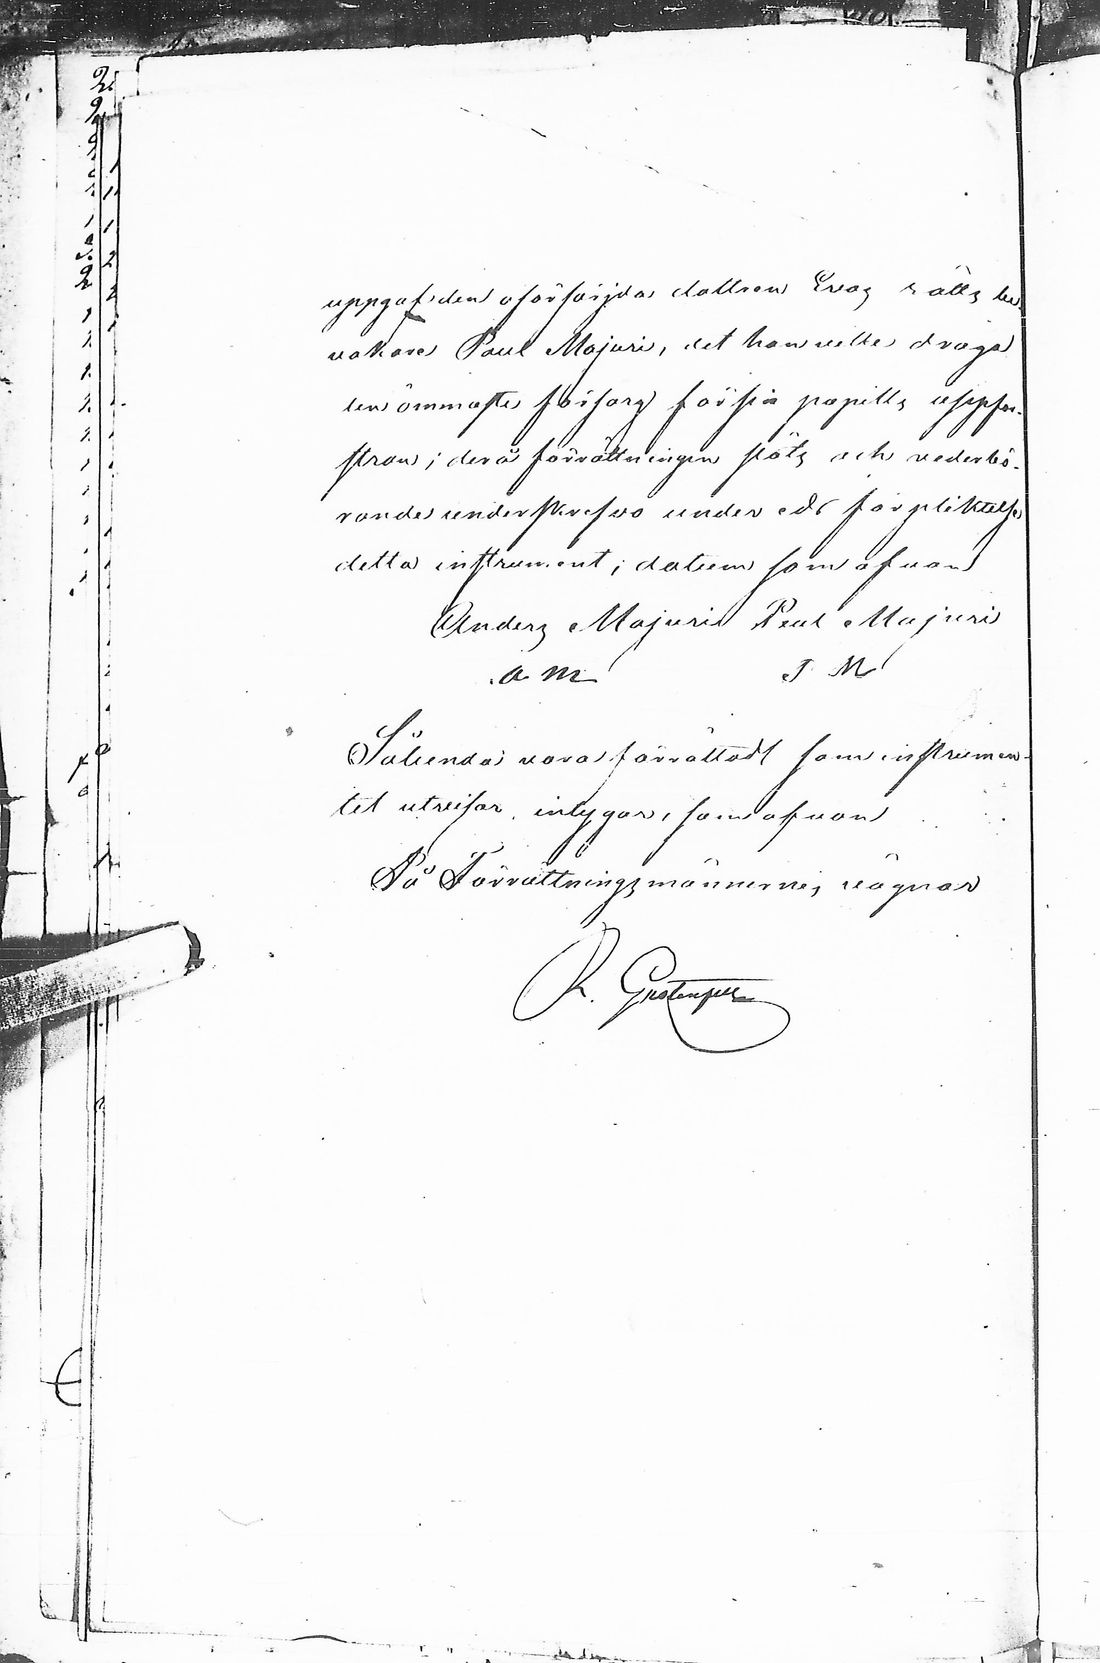 uppgaf den oförsörjda dottren Evas rätts be-
vakare Paul Majuri, det han ville draga
den ömmaste försorg för sin pupills uppfos-
stran; derå förrättningen slöts och vederbö-
rande underskrefvo under eds förpliktelse
detta instrument; datum som ofvan
Anders Majuri Paul Majuri
A M P M
Sålunda vara förrättadt som instrumen-
tet utvisar, intygar, som ofvan
På Förrättningsmännernes vägnar
K. Grotenfelt